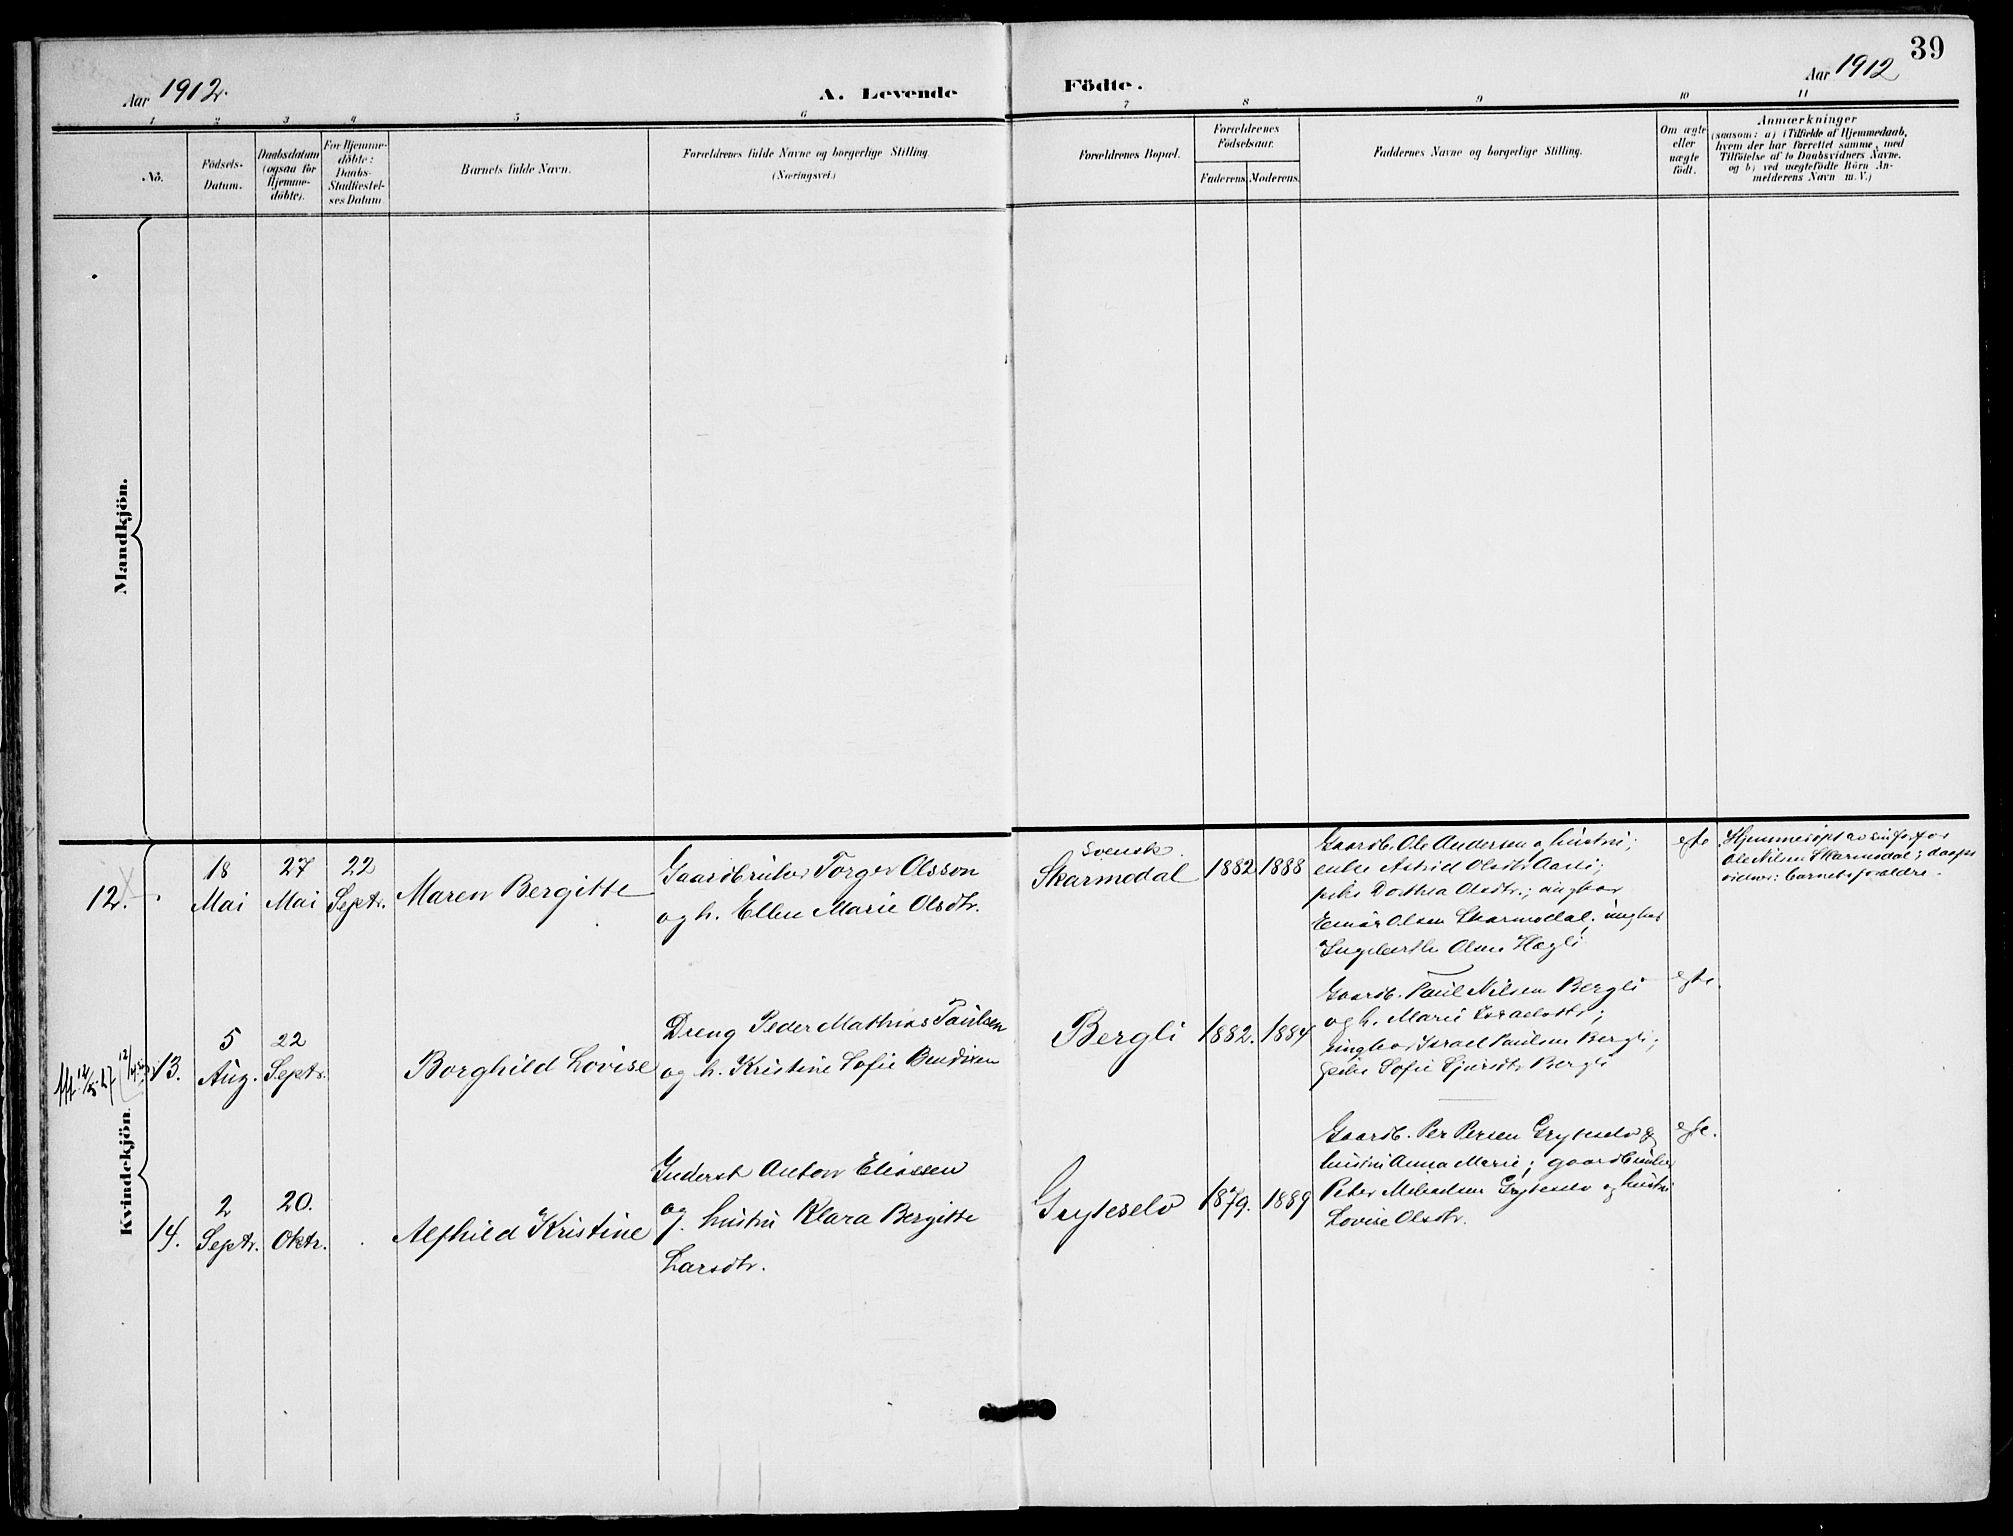 39
Aar 1912.
A. Levende Födte.
Aar 1912
1 2 3 4 5 6 7 8 9 10 11
No.
Födsels-
Datum.
Daabsdatum
(ogsaa for
Hjemme-
döbte).
For Hjemme-
döbte:
Daabs-
Stadfæstel-
ses Datum
Barnets fulde Navn.
Forældrenes fulde Navne og borgerlige Stilling.
(Næringsvei.)
Forældrenes Bopæl.
Forældrenes
Födselsaar.
Faderens.
Moderens.
Faddernes Navne og borgerlige Stilling.
Om ægte
eller
uægte
født.
Anmærkninger
(saasom: a) i Tilfælde af Hjemmedaab,
hvem der har forrettet samme, med
Tilföielse af to Daabsvidners Navne.
og b) ved uægtefödte Börn An-
melderens Navn m. V.)
Mandkjön.
Kvindekjön.
12.
18
Mai
27
Mai
22
Septr.
Maren Bergitte
Gaardbruker Torger Olsson
og h. Ellen Marie Olsdtr.
Svensk
Skarmodal
1882
1888
Gaardb. Ole Andersen og hustru;
enke Astrid Olsdtr
pike Dorthea Olsdtr.; ungkar
Einar Olsen Skarmodal; ungkar
Olsen Hægli
egte
Ole Nilsen Skarmodal; daaps
vidner: barnets forældre.
13.
5
Aug.
22
Septr.
Borghild Lovise
Dreng Peder Mathias Paulsen
og h. Kristine Sofie Bendixen
Bergli
1882.
1884
Gaardb. Paul Nilsen Bergli
og h. Marie Israelsdtr;
ungkar Israel Paulsen Bergli;
pike Sofie Sjursdtr Bergli
egte.
14.
2
Septr.
20.
Oktr.
Alfhild Kristine
Inderst Anton Eliassen
og hustru Klara Bergitte
Larsdtr.
Gryteselv
1879.
1889
Gaardb. Per Persen Gryteselv og
hustru Anna Marie; gaardbruker
Peter Mikalsen Gryteselv og hustru
Lovise Olsdtr.
egte.